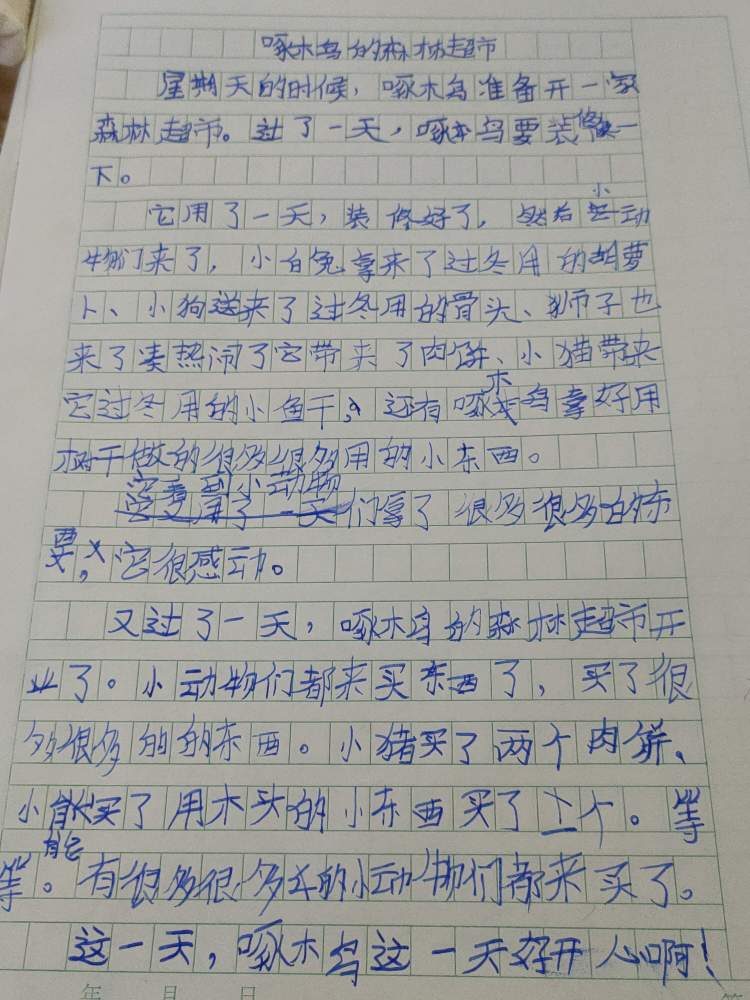 啄木鸟的森林超市
星期天的时候，啄木鸟准备开一家
森林超市。过了一天，啄木鸟要装修一
下。
它用了一天，装修好了，然后小动
物们来了，小白兔拿来了过冬用的胡萝
卜、小狗送来了过冬用的骨头、狮子也
来了凑热闹了它带来了肉饼、小猫带来
它过冬用的小鱼干，还有啄木鸟拿好用
树干做的很多很多用的小东西。
它看到小动物们拿了很多很多的东
西，它很感动。
又过了一天，啄木鸟的森林超市开
业了。小动物们都来买东西了，买了很
多很多的的东西。小猪买了两个肉饼、
小熊买了用木头的小东西买了十个。等
等。有很多很多的小动物们都来买了。
这一天，啄木鸟这一天好开心啊！
年 月 日